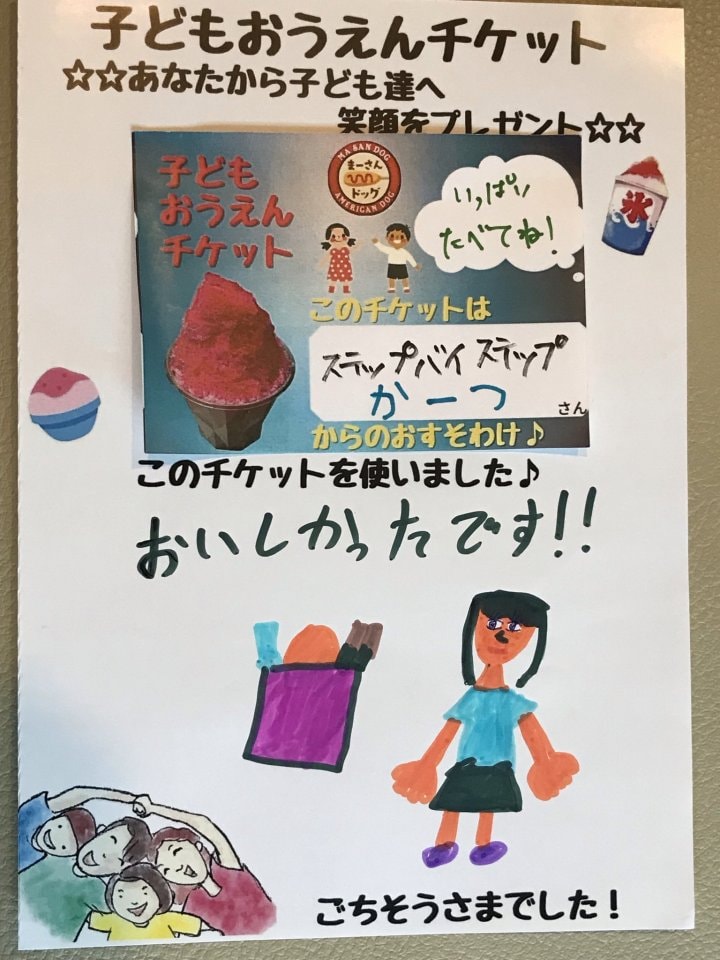 子どもおうえんチケット
☆☆あなたから子ども達へ
笑顔をプレゼント☆☆
子ども
おうえん
チケット
MA SAN DOG
まーさん
ドッグ
AMERICAN DOG
いっぱい
たべてね!
氷
このチケットは
ステップバイステップ
かーつ
さん
からのおすそわけ♪
このチケットを使いました♪
おいしかったです!!
ごちそうさまでした!